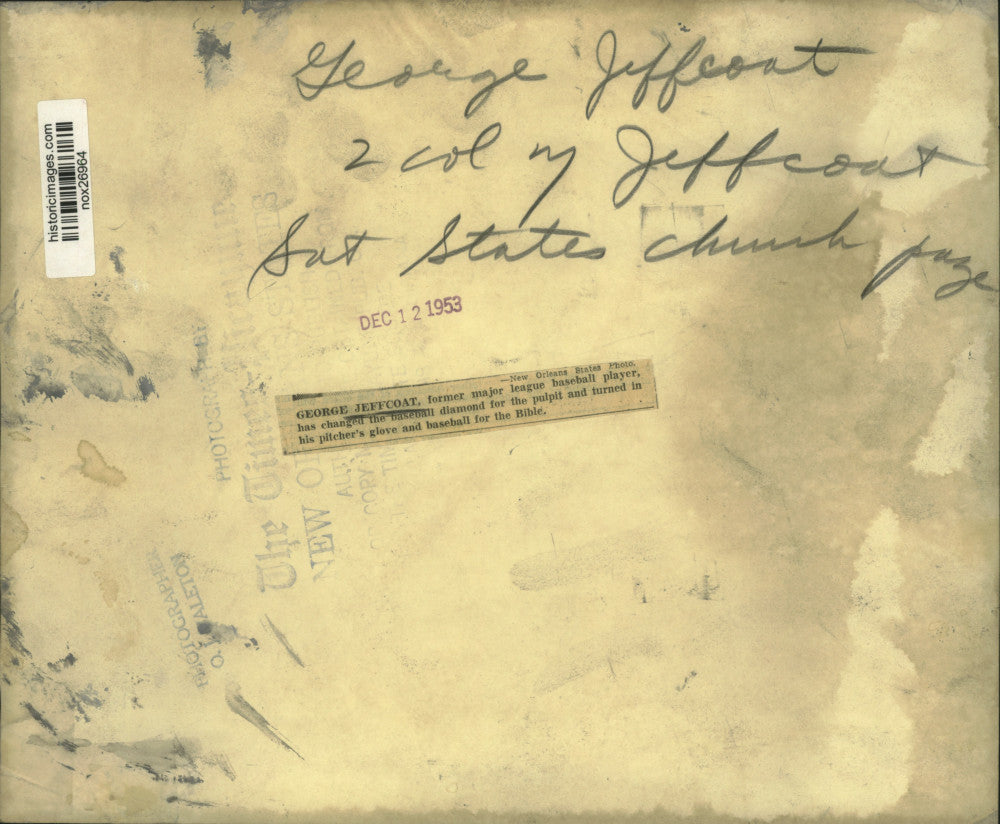 George Jeffcoat
2 col
Jeffcoat
Sat States church page
historicimages.com
nox26964
DEC 12 1953
—New Orleans States Photo.
GEORGE JEFFCOAT, former major league baseball player,
has changed the baseball diamond for the pulpit and turned in
his pitcher's glove and baseball for the Bible.
PHOTOGRAPH BY
The Times
NEW
PHOTOGRAPHER
O.